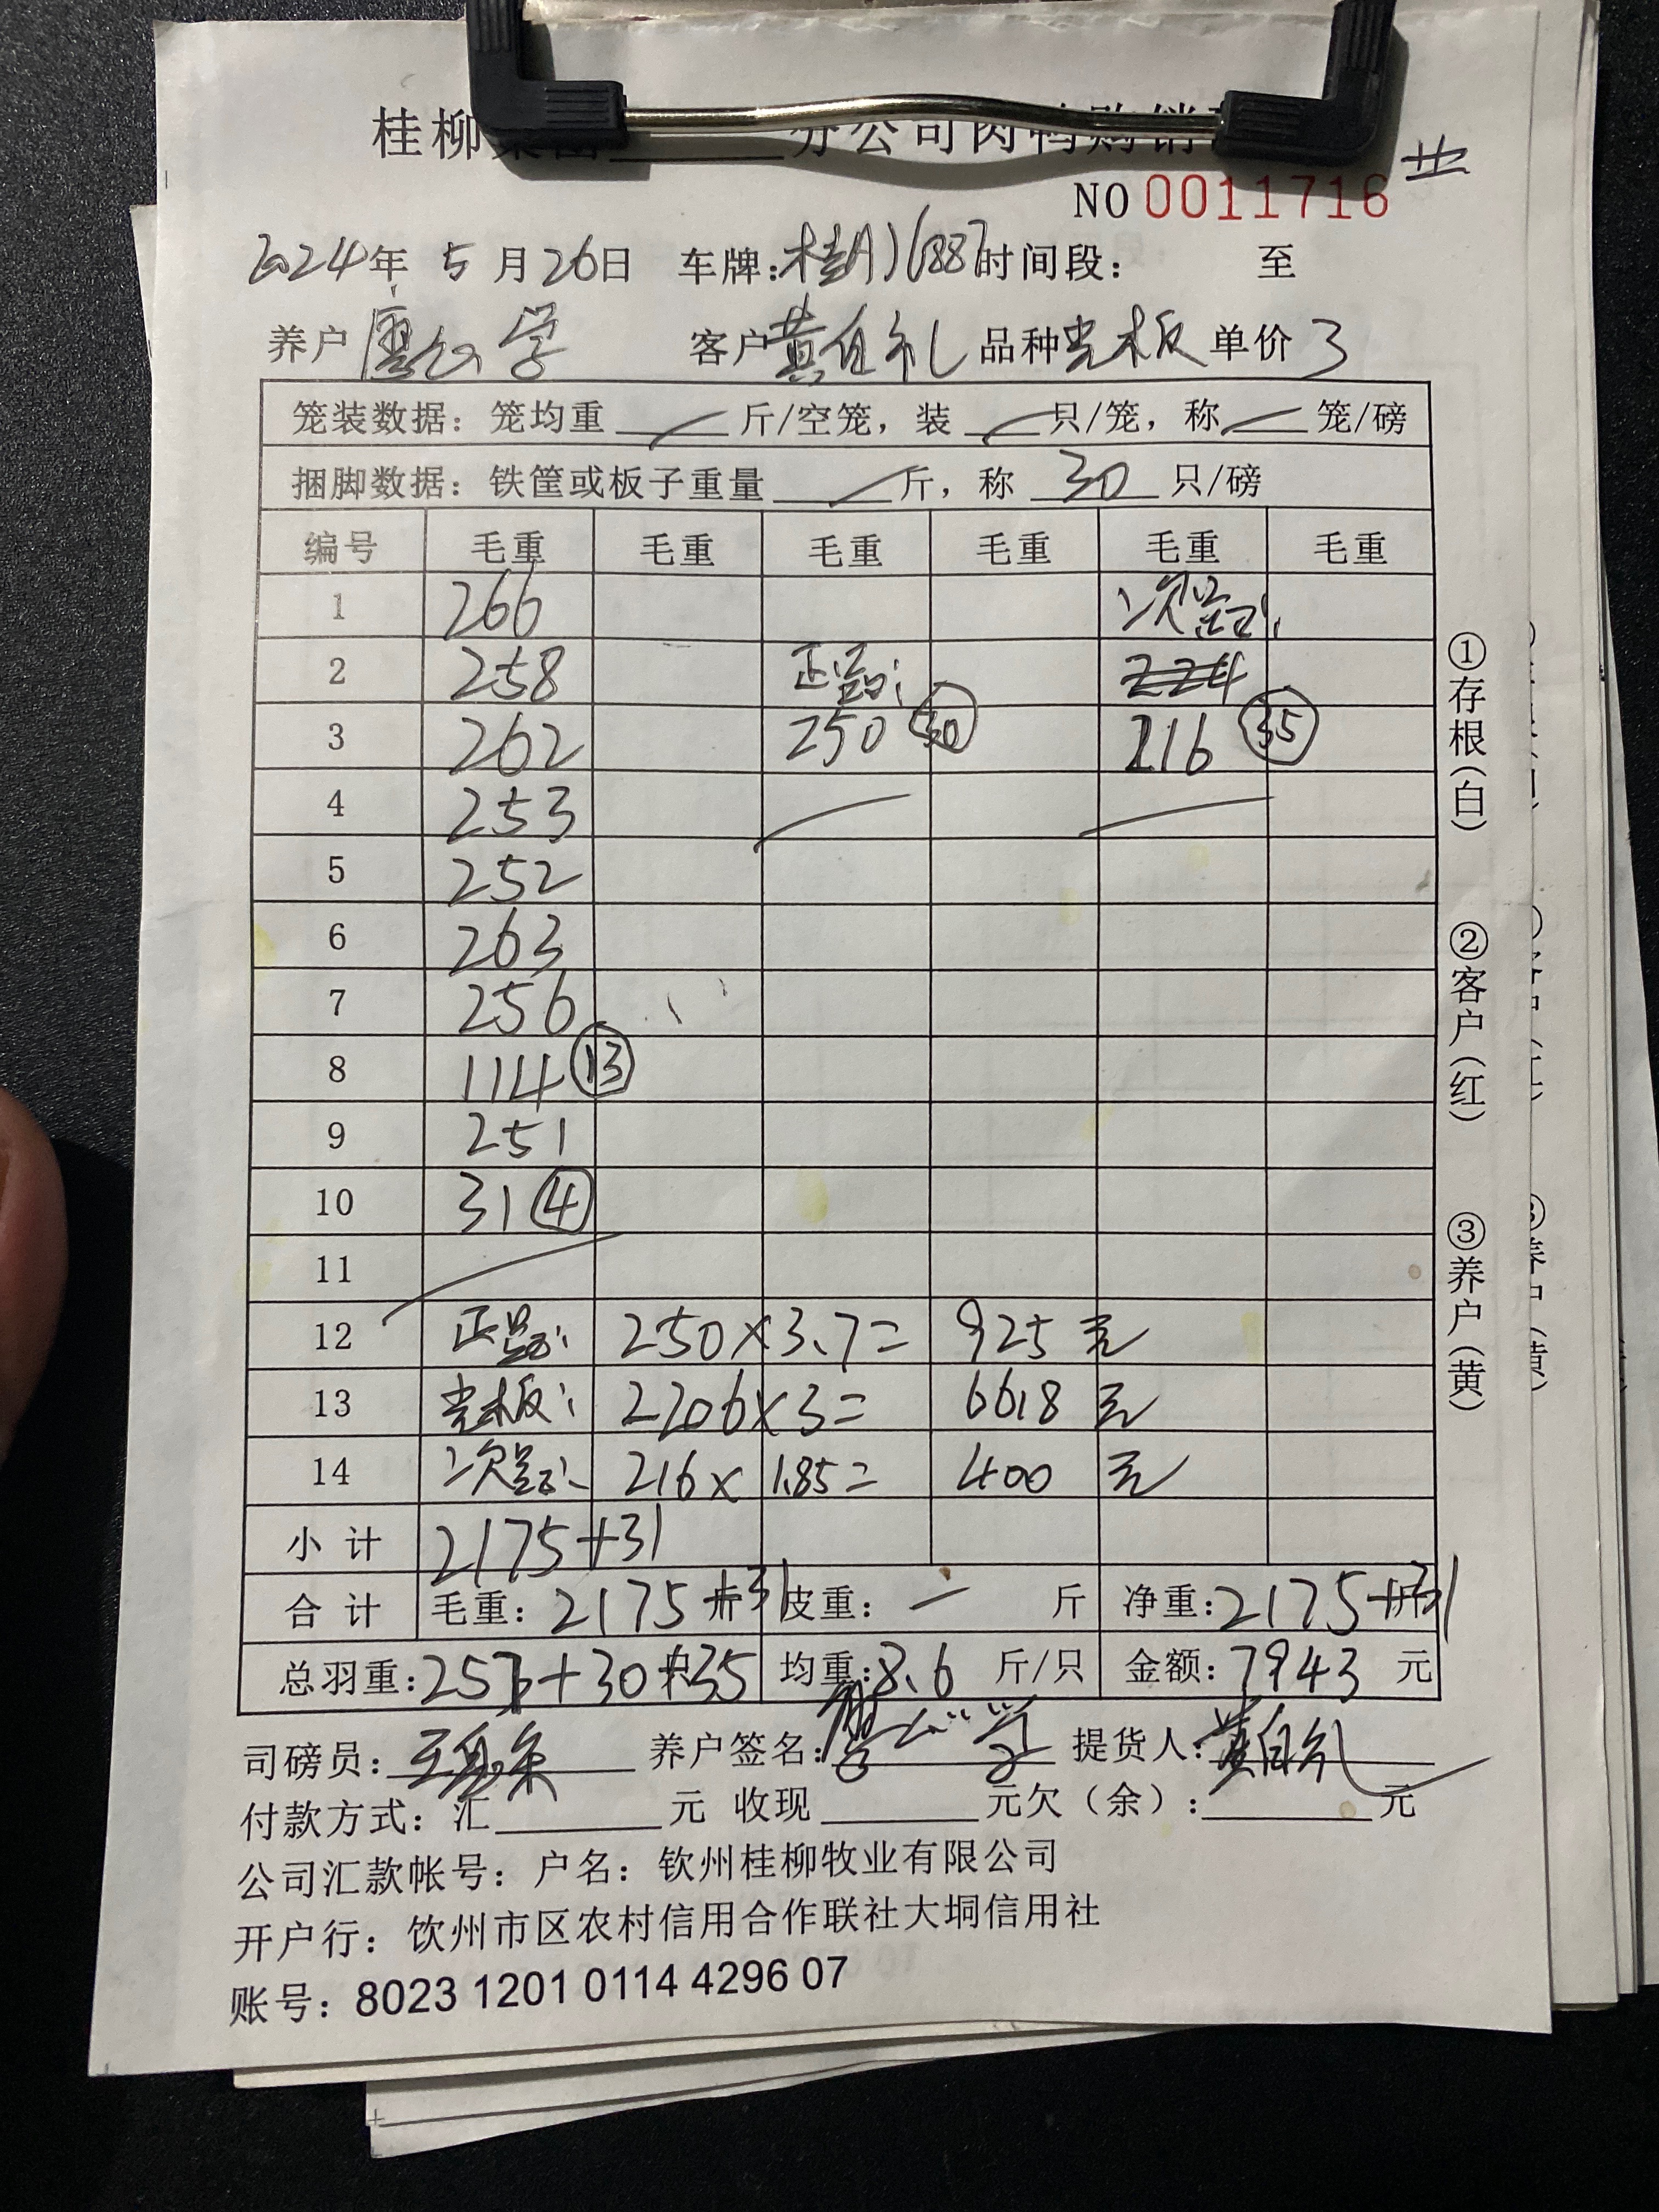 桂柳集团 分公司肉鸭购销
NO 0011716
2024年 5月26日 车牌: 时间段： 至
养户 学 客户黄自礼 品种光板 单价 3
笼装数据：笼均重 斤/空笼，装 只/笼，称 笼/磅
捆脚数据：铁筐或板子重量 斤，称 30 只/磅
编号 毛重 毛重 毛重 毛重 毛重 毛重
1 266 次
2 258 正 224
3 262 250 30 216 35
4 253
5 252
6 263
7 256
8 114 13
9 251
10 31 4
11
12 正 250×3.7= 925 元
13 光板: 2206×3= 6618 元
14 次 216× 1.85= 400 元
小计 2175+31
合计 毛重: 2175+31 斤 皮重: 一 斤 净重: 2175+31 斤
总羽重: 257+30+35 只 均重: 8.6 斤/只 金额: 7943 元
司磅员: 养户签名: 学 提货人: 黄自礼
付款方式: 汇 元 收现 元欠（余）: 元
公司汇款帐号: 户名: 钦州桂柳牧业有限公司
开户行: 钦州市区农村信用合作联社大垌信用社
账号: 8023 1201 0114 4296 07
①存根（白）
②客户（红）
③养户（黄）